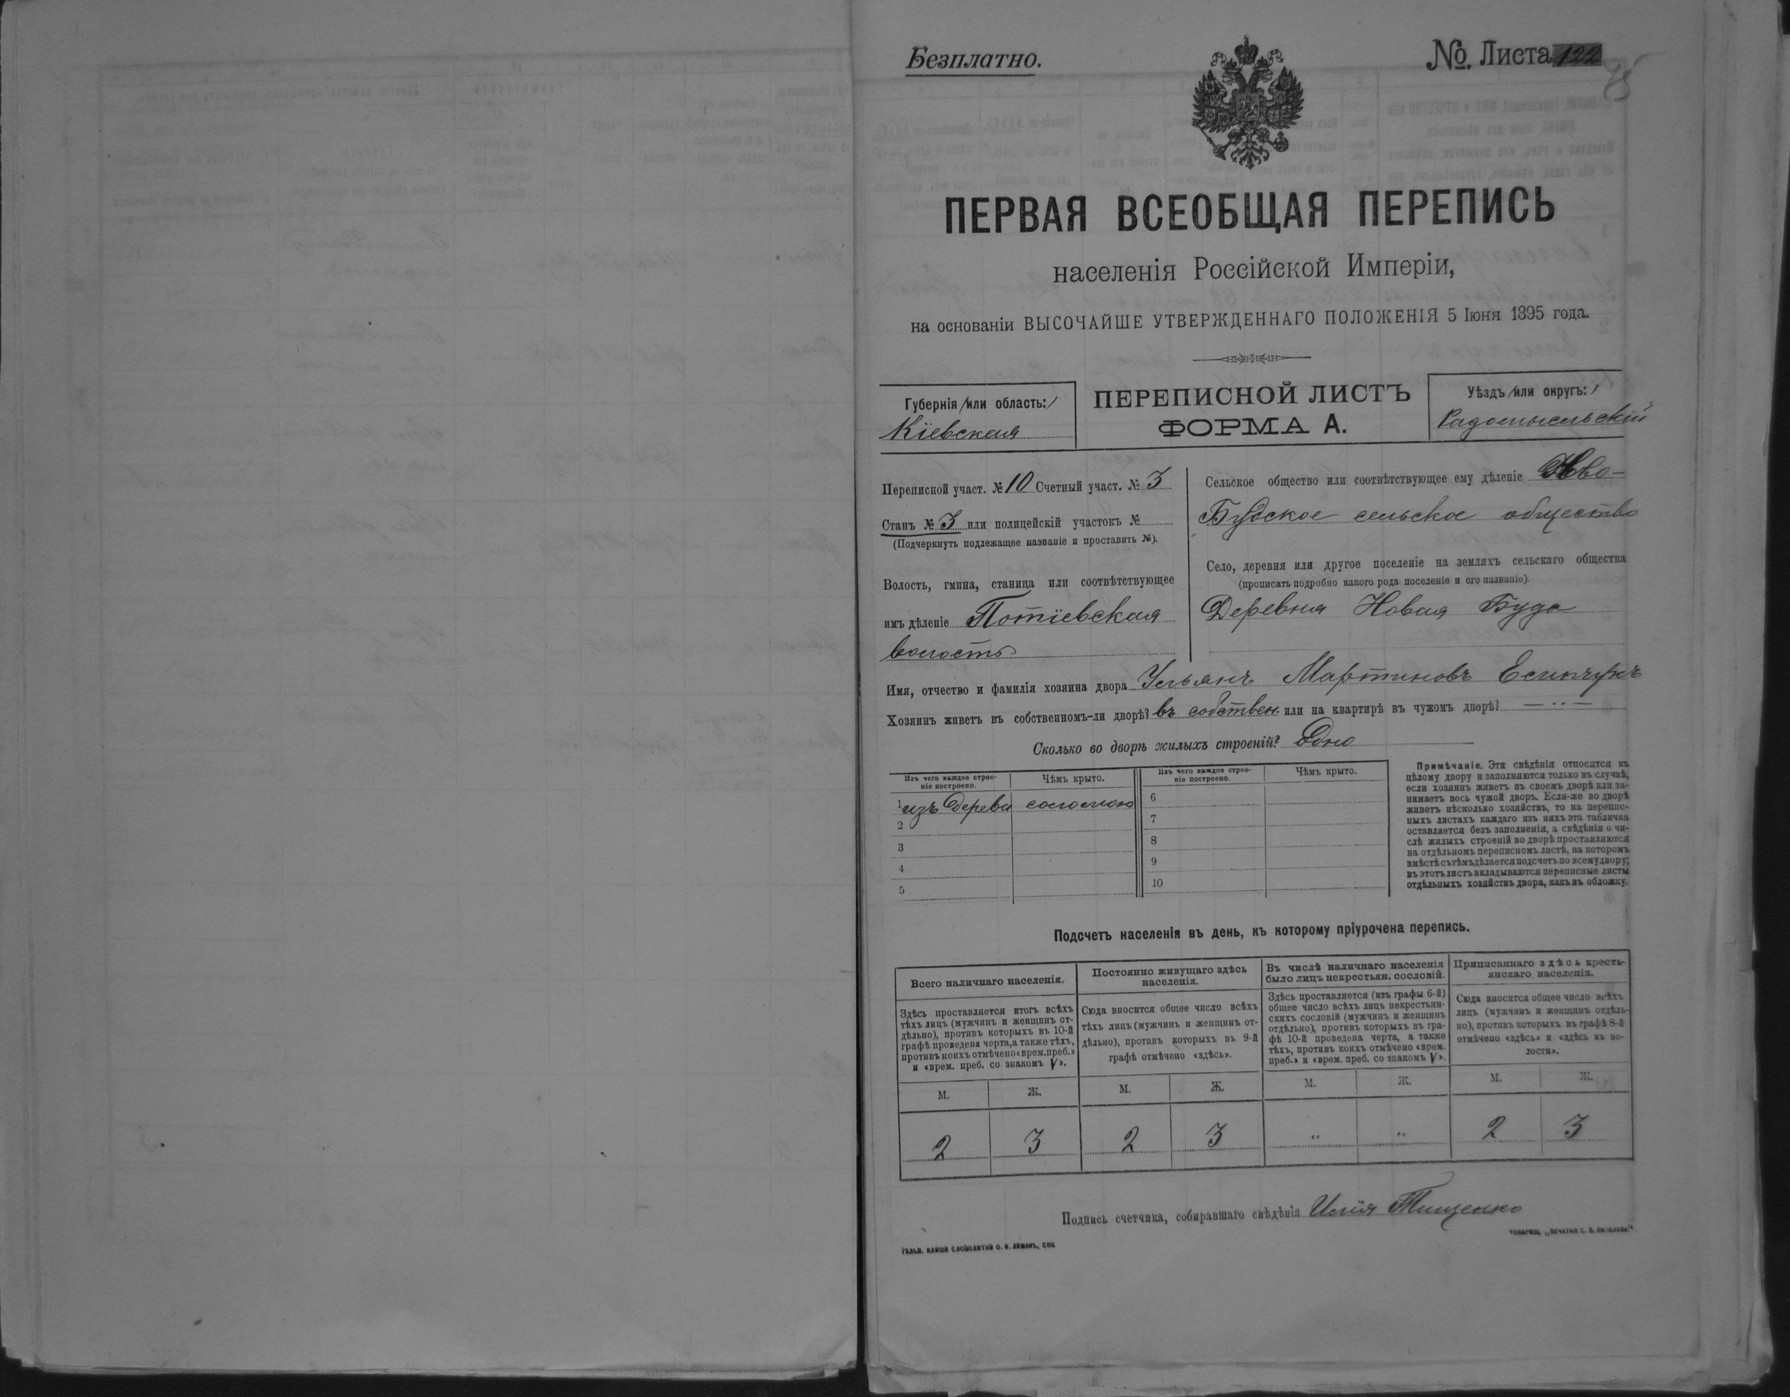 Безплатно.
№ Листа 122
75
ПЕРВАЯ ВСЕОБЩАЯ ПЕРЕПИСЬ
населенія Россійской Имперіи,
на основаніи ВЫСОЧАЙШЕ УТВЕРЖДЕННАГО ПОЛОЖЕНІЯ 5 Іюня 1895 года.
Губернія /или область:/
Кіевская
ПЕРЕПИСНОЙ ЛИСТЪ
ФОРМА А.
Уѣздъ /или округъ:/
Радомысльскій
Переписной участ. № 10 Счетный участ. № 3
Станъ № 3 или полицейскій участокъ №
(Подчеркнуть подлежащее названіе и проставить №).
Волость, гмина, станица или соотвѣтствующее
имъ дѣленіе Потіевская
волость
Сельское общество или соотвѣтствующее ему дѣленіе Ново-
Будское сельское общество
Село, деревня или другое поселеніе на земляхъ сельскаго общества
(прописать подробно какого рода поселеніе и его названіе)
Деревня Новая Буда
Имя, отчество и фамилія хозяина двора Ульянъ Мартиновъ Есипчукъ
Хозяинъ живетъ въ собственномъ-ли дворѣ? въ собствен. или на квартирѣ въ чужомъ дворѣ? — ·· —
Сколько во дворѣ жилыхъ строеній? Одно
Изъ чего каждое строе-
ніе построено.
Чѣмъ крыто.
Изъ чего каждое строе-
ніе построено.
Чѣмъ крыто.
1 изъ дерева соломою
2
3
4
5
6
7
8
9
10
Примѣчаніе. Эти свѣдѣнія относятся къ
цѣлому двору и заполняются только въ случаѣ,
если хозяинъ живетъ въ своемъ дворѣ или за-
нимаетъ весь чужой дворъ. Если-же во дворѣ
живетъ нѣсколько хозяйствъ, то на перепис-
ныхъ листахъ каждаго изъ нихъ эта табличка
оставляется безъ заполненія, а свѣдѣнія о чи-
слѣ жилыхъ строеній во дворѣ проставляются
на отдѣльномъ переписномъ листѣ, на которомъ
вмѣстѣ съ тѣмъ дѣлается подсчетъ по всему двору;
въ этотъ листъ вкладываются переписные листы
отдѣльныхъ хозяйствъ двора, какъ въ обложку.
Подсчетъ населенія въ день, къ которому пріурочена перепись.
Всего наличнаго населенія.
Здѣсь проставляется итогъ всѣхъ
тѣхъ лицъ (мужчинъ и женщинъ от-
дѣльно), противъ которыхъ въ 10-й
графѣ проведена черта, а также тѣхъ,
противъ коихъ отмѣчено «врем. преб.»
и «врем. преб. со знакомъ V».
Постоянно живущаго здѣсь
населенія.
Сюда вносится общее число всѣхъ
тѣхъ лицъ (мужчинъ и женщинъ от-
дѣльно), противъ которыхъ въ 9-й
графѣ отмѣчено «здѣсь».
Въ числѣ наличнаго населенія
было лицъ некрестьян. сословій.
Здѣсь проставляется (изъ графы 6-й)
общее число всѣхъ лицъ некрестьян-
скихъ сословій (мужчинъ и женщинъ
отдѣльно), противъ которыхъ въ гра-
фѣ 10-й проведена черта, а также
тѣхъ, противъ коихъ отмѣчено «врем.
преб.» и «врем. преб. со знакомъ V».
Приписаннаго здѣсь кресть-
янскаго населенія.
Сюда вносится общее число всѣхъ
лицъ (мужчинъ и женщинъ отдѣль-
но), противъ которыхъ въ графѣ 8-й
отмѣчено «здѣсь» и «здѣсь въ во-
лости».
М. Ж. М. Ж. М. Ж. М. Ж.
2 3 2 3 ·· ·· 2 3
Подпись счетчика, собиравшаго свѣдѣнія Илія Тищенко